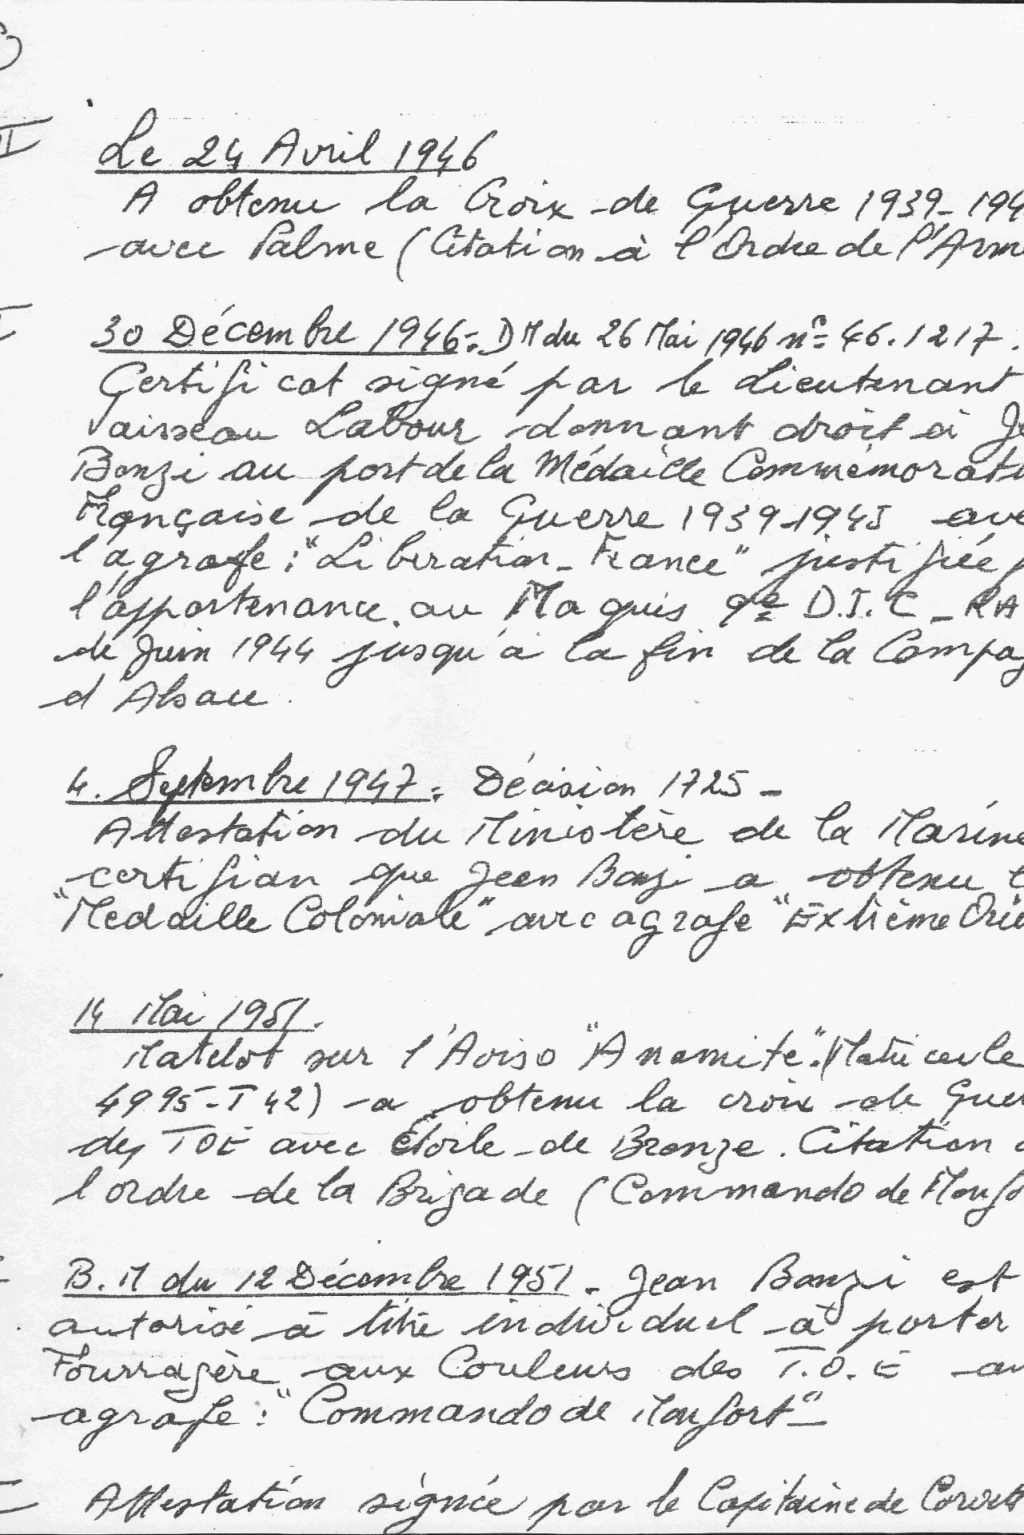 II
Le 24 Avril 1946
A obtenu la Croix de Guerre 1939-194
avec Palme (Citation à l'Ordre de l'Arm
30 Décembre 1946: DM du 26 Mai 1946 n° 46.1217.
Certificat signé par le Lieutenant
Vaisseau Labour donnant droit à Je
Bonzi au port de la Médaille Commémorati
Française de la Guerre 1939-1945 ave
l'agrafe: "Libération-France" justifiée p
l'appartenance au Maquis 9e D.I.C - RA
de Juin 1944 jusqu'à la fin de la Campag
d'Alsace.
4. Septembre 1947: Décision 1725-
Attestation du Ministère de la Marine
certifian que Jean Bonzi a obtenu
"Médaille Coloniale" avec agrafe "Extrême Orie
14 Mai 1951.
Matelot sur l'Aviso "Anamite". (Matricule
4995-T42) a obtenu la croix de Guer
des TOE avec Étoile de Bronze. Citation
l'ordre de la Brigade (Commando de Monfo
B.M du 12 Décembre 1951- Jean Bonzi est
autorisé à titre individuel à porter
Fourragère aux Couleurs des T.O.E av
agrafe: "Commando de Monfort"-
Attestation signée par le Capitaine de Corvett